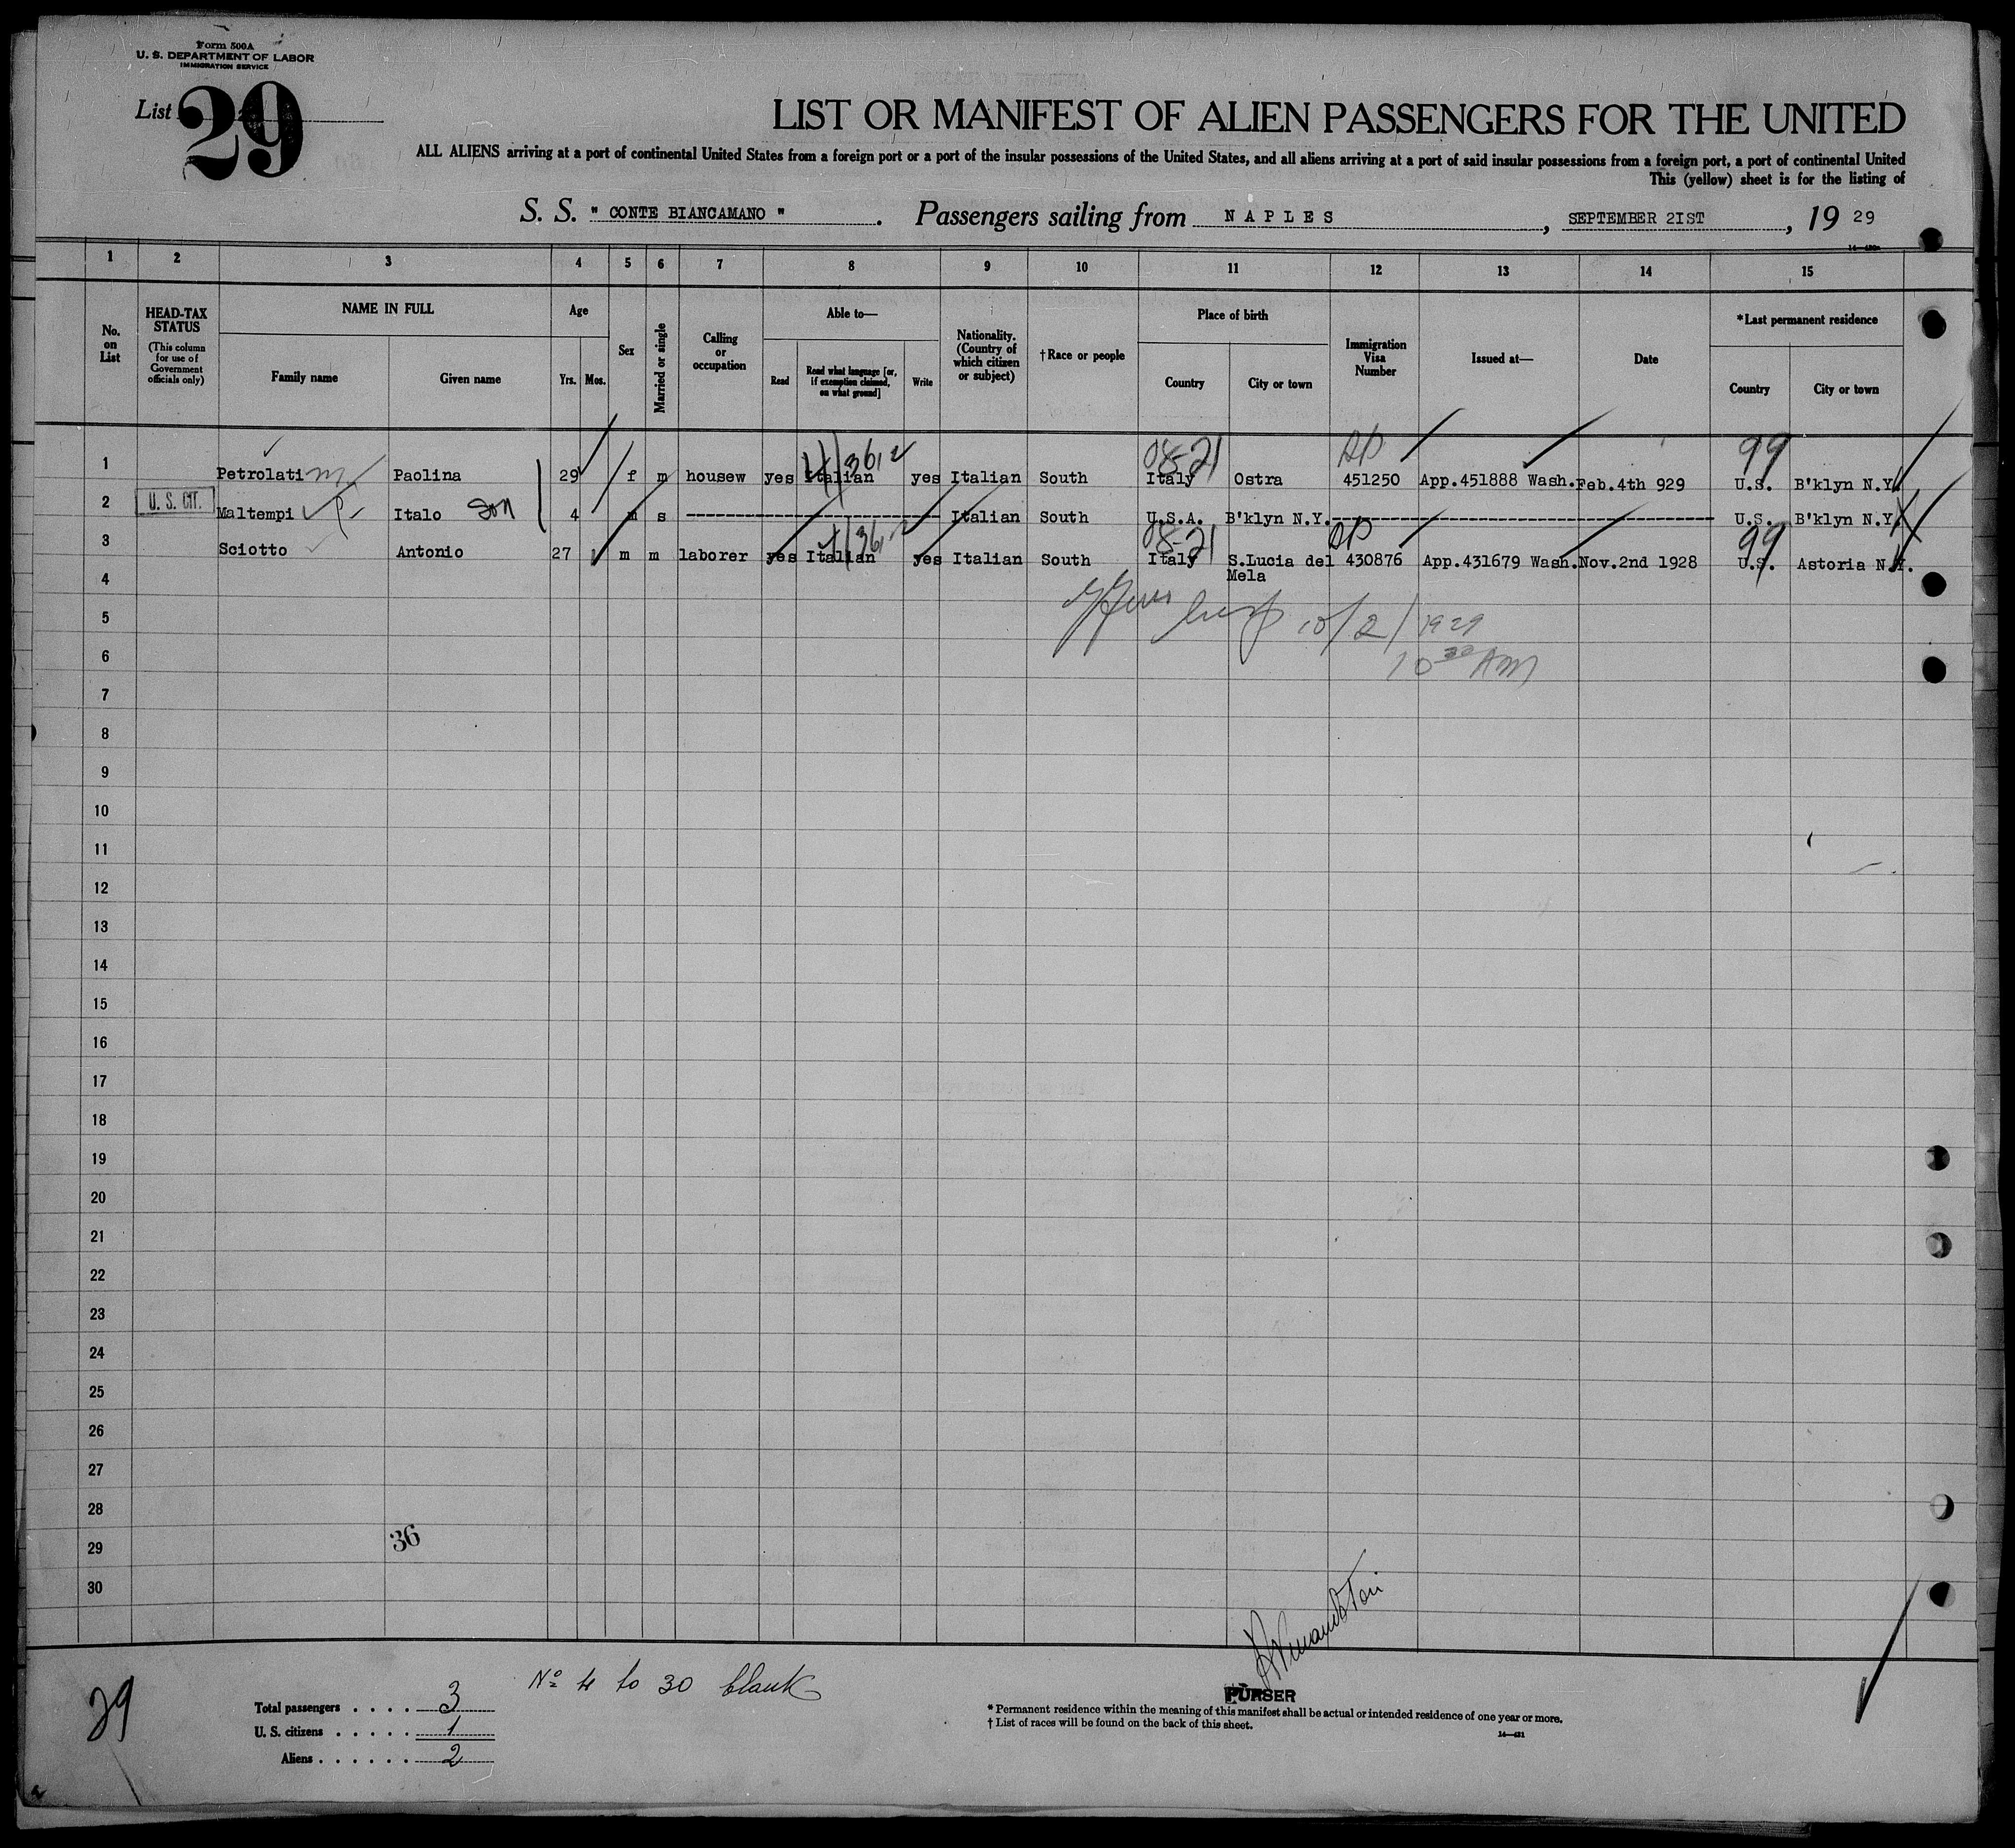 Form 500A
U. S. DEPARTMENT OF LABOR
IMMIGRATION SERVICE
List 29
LIST OR MANIFEST OF ALIEN PASSENGERS FOR THE UNITED
ALL ALIENS arriving at a port of continental United States from a foreign port or a port of the insular possessions of the United States, and all aliens arriving at a port of said insular possessions from a foreign port, a port of continental United
This (yellow) sheet is for the listing of
S. S. " CONTE BIANCAMANO " . Passengers sailing from NAPLES , SEPTEMBER 21ST , 19 29
1 2 3 4 5 6 7 8 9 10 11 12 13 14 15
No. on List
HEAD-TAX STATUS
(This column for use of Government officials only)
NAME IN FULL
Family name
Given name
Age
Yrs. Mos.
Sex
Married or single
Calling or occupation
Able to—
Read
Read what language [or, if exemption claimed, on what ground]
Write
Nationality. (Country of which citizen or subject)
†Race or people
Place of birth
Country
City or town
Immigration Visa Number
Issued at—
Date
*Last permanent residence
Country
City or town
08-21 99
1 Petrolati m Paolina 29 f m housew yes Italian yes Italian South Italy Ostra 451250 App.451888 Wash. Feb.4th 929 U.S. B'klyn N.Y.
2 U. S. CIT. Maltempi Italo son 4 m s Italian South U.S.A. B'klyn N.Y. U.S. B'klyn N.Y.
08-21 99
3 Sciotto Antonio 27 m m laborer yes Italian yes Italian South Italy S.Lucia del Mela 430876 App.431679 Wash. Nov.2nd 1928 U.S. Astoria N.Y.
4
5 10/2/1929
6 10 30 AM
7
8
9
10
11
12
13
14
15
16
17
18
19
20
21
22
23
24
25
26
27
28
29 36
30
No 4 to 30 blank
29
Total passengers . . . . 3
U. S. citizens . . . . . 1
Aliens . . . . . . 2
PURSER
* Permanent residence within the meaning of this manifest shall be actual or intended residence of one year or more.
† List of races will be found on the back of this sheet.